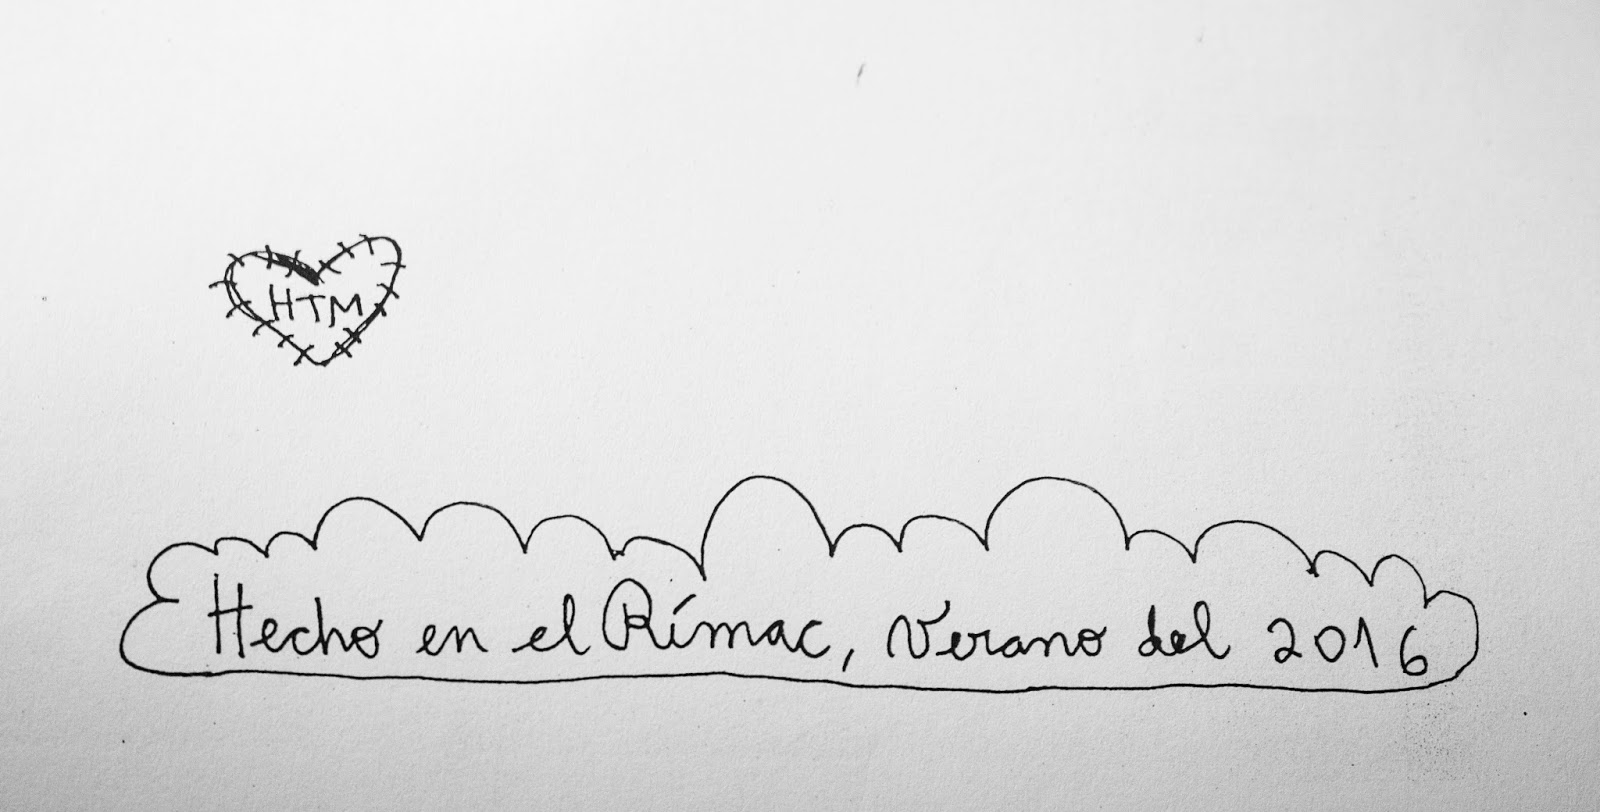 HTM
Hecho en el Rímac, Verano del 2016